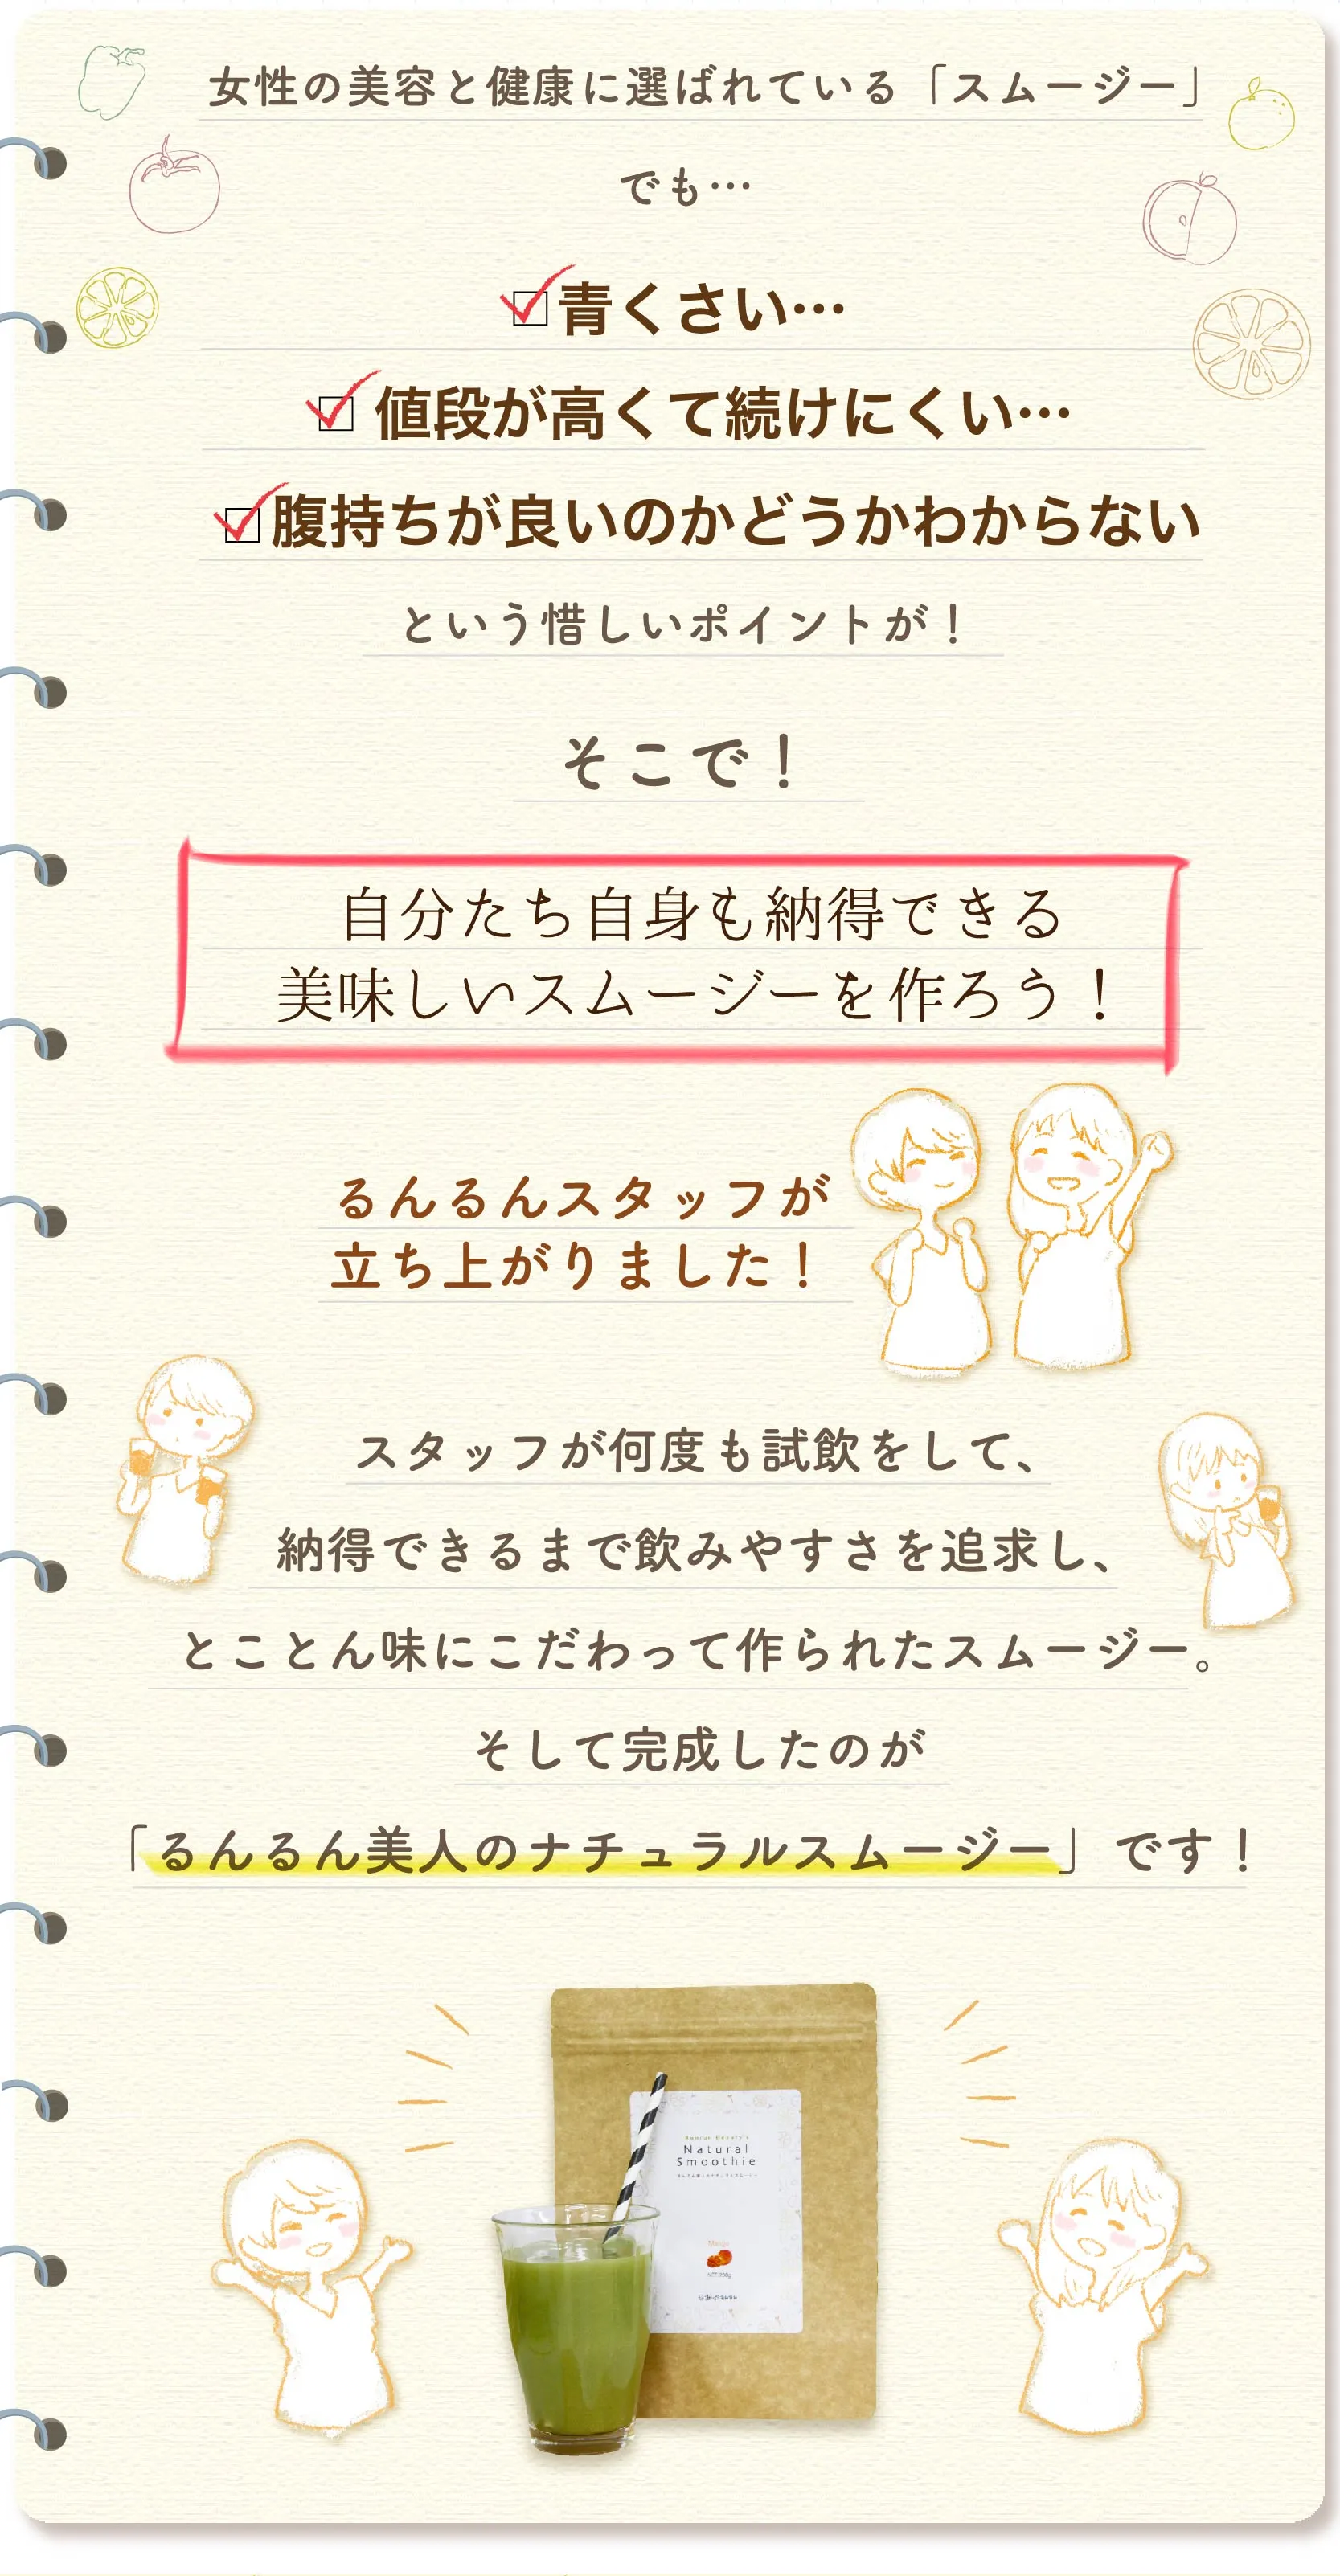 女性の美容と健康に選ばれている「スムージー」
でも…
青くさい…
値段が高くて続けにくい…
腹持ちが良いのかどうかわからない
という惜しいポイントが！
そこで！
自分たち自身も納得できる
美味しいスムージーを作ろう！
るんるんスタッフが
立ち上がりました！
スタッフが何度も試飲をして、
納得できるまで飲みやすさを追求し、
とことん味にこだわって作られたスムージー。
そして完成したのが
「るんるん美人のナチュラルスムージー」です！
Runrun Beauty's
Natural
Smoothie
るんるん美人のナチュラルスムージー
Mango
NET 200g